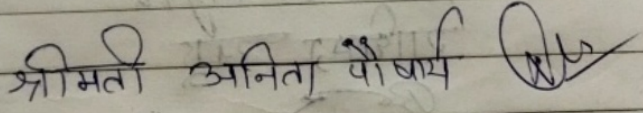 श्रीमती अनिता पौषार्य